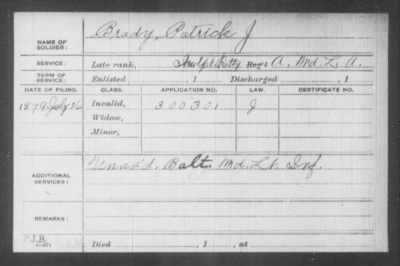 NAME OF SOLDIER: Brady, Patrick J
SERVICE: Late rank, Indpt Batty Reg't A, Md. L. A.
TERM OF SERVICE: Enlisted , 1 Discharged , 1
DATE OF FILING. CLASS. APPLICATION NO. LAW. CERTIFICATE NO.
1879 July 26 Invalid, 300301 J
Widow,
Minor,
ADDITIONAL SERVICES: Unas'd. Balt. Md. Lt. Inf.
REMARKS:
Died , 1 , at